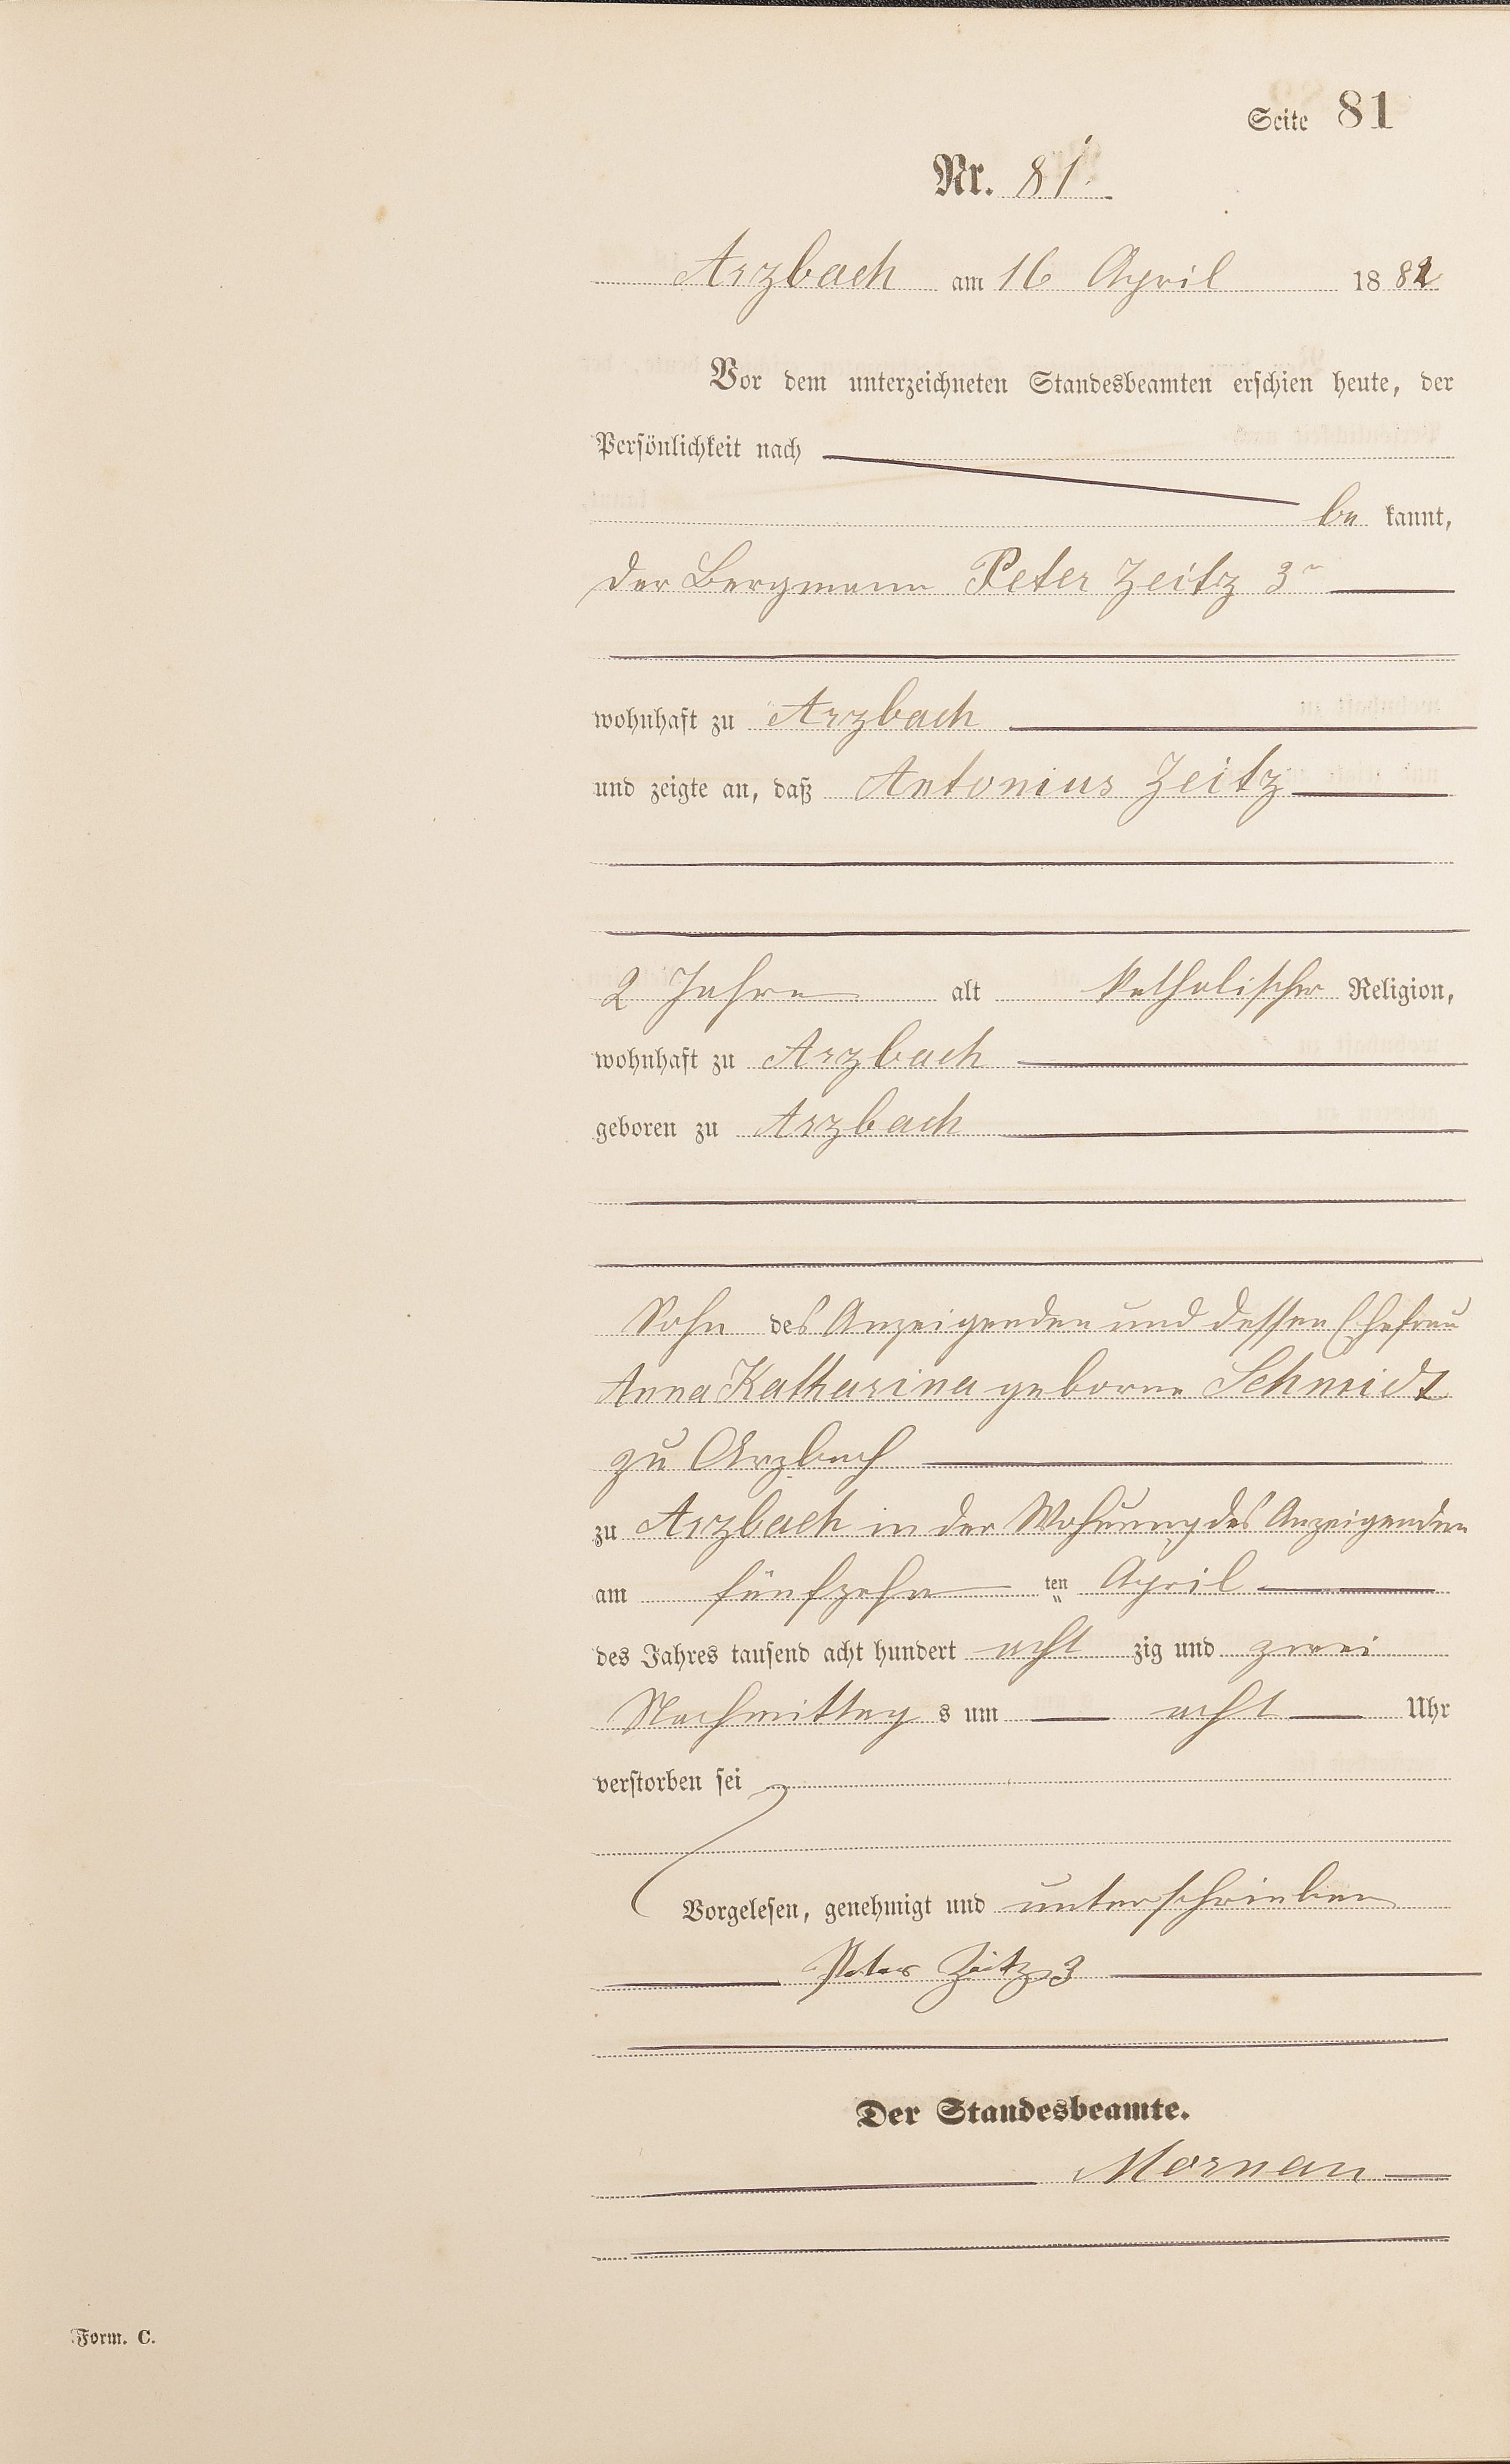 Seite 81
Nr. 81.
Arzbach am 16 April 1882
Vor dem unterzeichneten Standesbeamten erschien heute, der
Persönlichkeit nach
be kannt,
der Bergmann Peter Zeitz 3r
wohnhaft zu Arzbach
und zeigte an, daß Antonius Zeitz
2 Jahre alt katholischer Religion,
wohnhaft zu Arzbach
geboren zu Arzbach
Sohn des Anzeigenden und dessen Ehefrau
Anna Katharina geborne Schmidt
zu Arzbach
zu Arzbach in der Wohnung des Anzeigenden
am fünfzehn ten April
des Jahres tausend acht hundert acht zig und zwei
Nachmittag s um acht Uhr
verstorben sei
Vorgelesen, genehmigt und unterschrieben
Peter Zeitz 3
Der Standesbeamte.
Form. C.